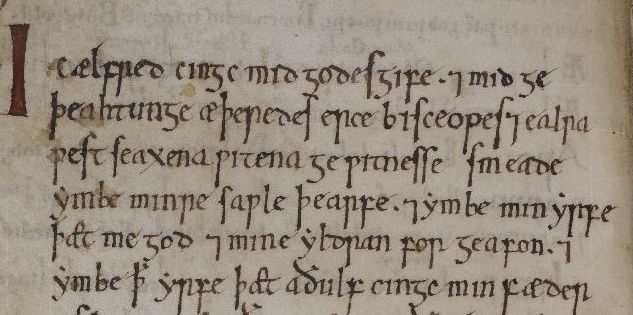 Ic ælfred cingc mid godes gife. ⁊ mid ge
þeahtunge æþeredes erce bisceopes ⁊ ealra
ƿest seaxena ƿitena geƿitnesse smeade
ymbe minre saƿle þearfe. ⁊ ymbe min yrfe
þæt me god ⁊ mine yldran forgeafon. ⁊
ymbe ꝥ yrfe þæt aðulf cingc min fæder